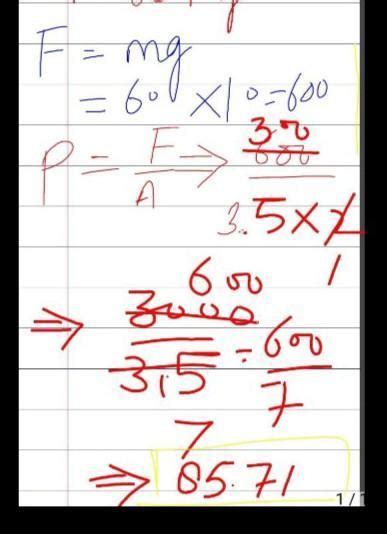 F = mg
= 60 × 10 = 600
P = F/A → 300 600
3.5 × 2 1
600
⇒ 3000/3.5 = 600/7
7
⇒ 85.71